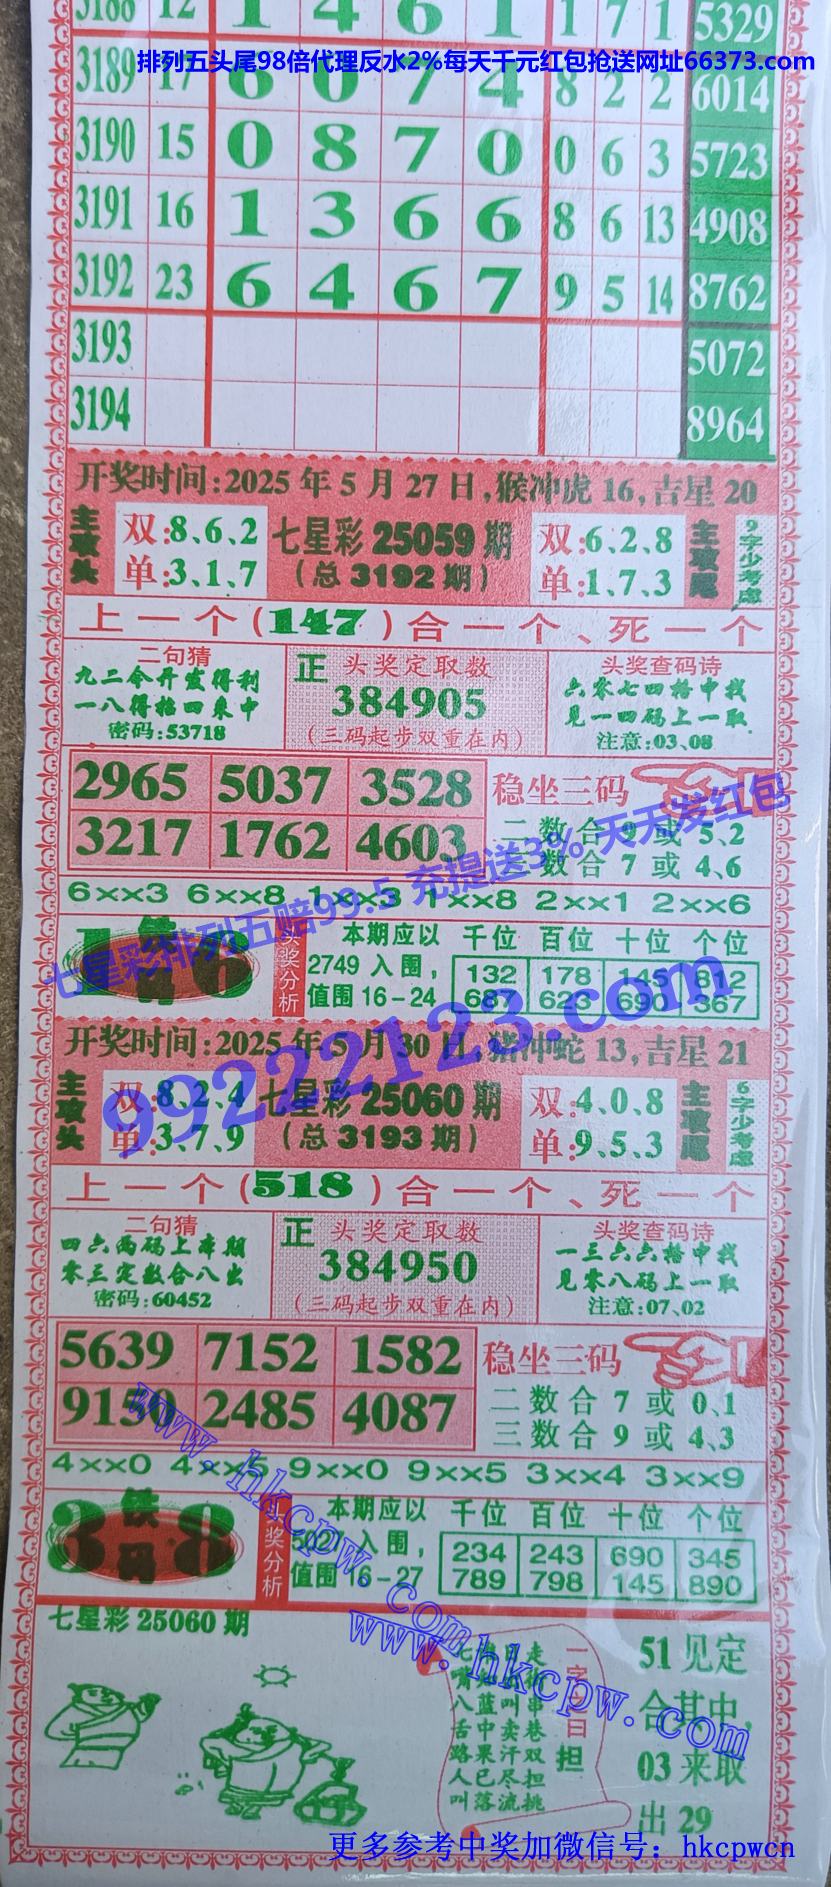 3188 12 1 4 6 1 1 7 1 5329
排列五头尾98倍代理反水2%每天千元红包抢送网址66373.com
3189 17 6 0 7 4 8 2 2 6014
3190 15 0 8 7 0 0 6 3 5723
3191 16 1 3 6 6 8 6 13 4908
3192 23 6 4 6 7 9 5 14 8762
3193 5072
3194 8964
开奖时间:2025年5月27日,猴冲虎16,吉星20
主攻头
双:8、6、2
单:3、1、7
七星彩25059期
(总3192期)
双:6、2、8
单:1、7、3
主攻尾
9字少考虑
上一个(147)合一个、死一个
二句猜
九二合开发得利
一八得招四来中
密码:53718
正 头奖定取数
384905
(三码起步双重在内)
头奖查码诗
六零七四格中找
见一四码上一取
注意:03、08
2965 5037 3528
3217 1762 4603
稳坐三码
二数合9或5、2
三数合7或4、6
6××3 6××8 1××3 1××8 2××1 2××6
七星彩排列五赔99.5 充提送3% 天天发红包
铁码
头奖分析
本期应以
2749入围,
值围16-24
千位 百位 十位 个位
132 178 145 812
687 623 690 367
99222123.com
开奖时间:2025年5月30日,猪冲蛇13,吉星21
主攻头
双:8、2、4
单:3、7、9
七星彩25060期
(总3193期)
双:4、0、8
单:9、5、3
主攻尾
6字少考虑
上一个(518)合一个、死一个
二句猜
四六两码上本期
零三定数合八出
密码:60452
正 头奖定取数
384950
(三码起步双重在内)
头奖查码诗
一三六六格中找
见零八码上一取
注意:07、02
5639 7152 1582
9150 2485 4087
稳坐三码
二数合7或0、1
三数合9或4、3
4××0 4××5 9××0 9××5 3××4 3××9
www.hkcpw.com
3 铁码 8
头奖分析
本期应以
5027入围,
值围16-27
千位 百位 十位 个位
234 243 690 345
789 798 145 890
七星彩25060期
www.hkcpw.com
一字
曰
担
走
串巷双担挑
叫卖汗尽流
八蓝中果已落
七嘴八舌路人叫
51见定
合其中,
03来取
出29
更多参考中奖加微信号：hkcpwcn